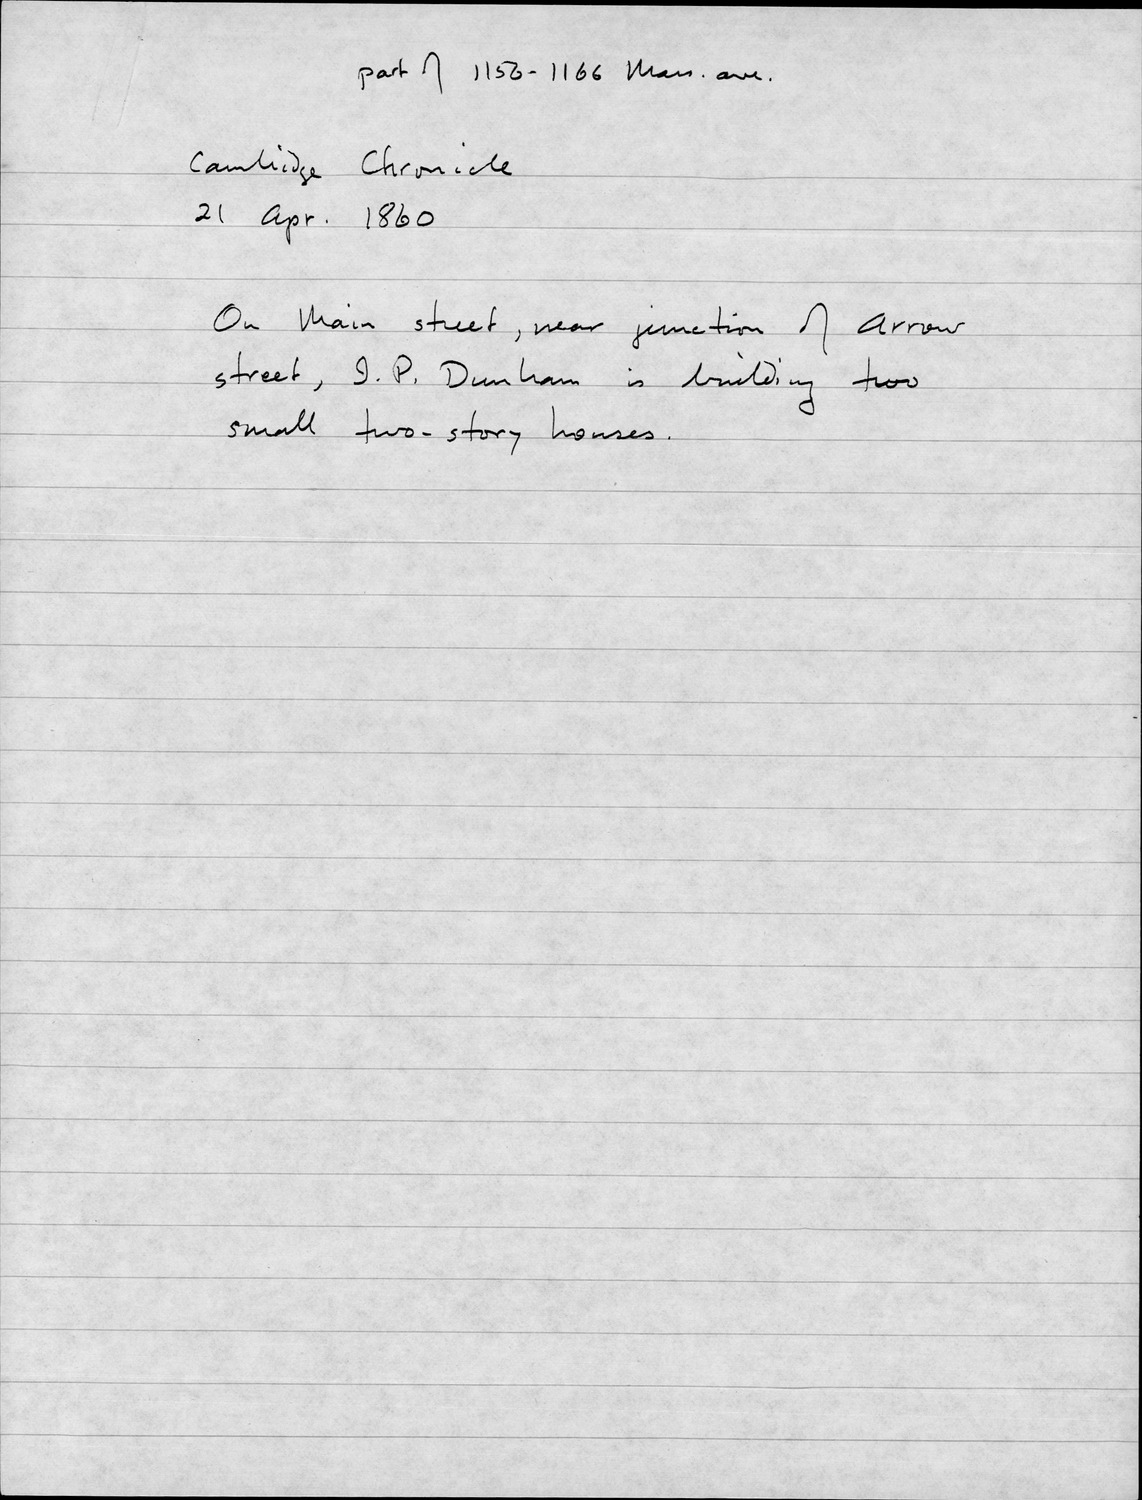 part of 1156-1166 Mass. ave.
Cambridge Chronicle
21 Apr. 1860
On Main street, near junction of Arrow
street, I. P. Dunham is building two
small two-story houses.